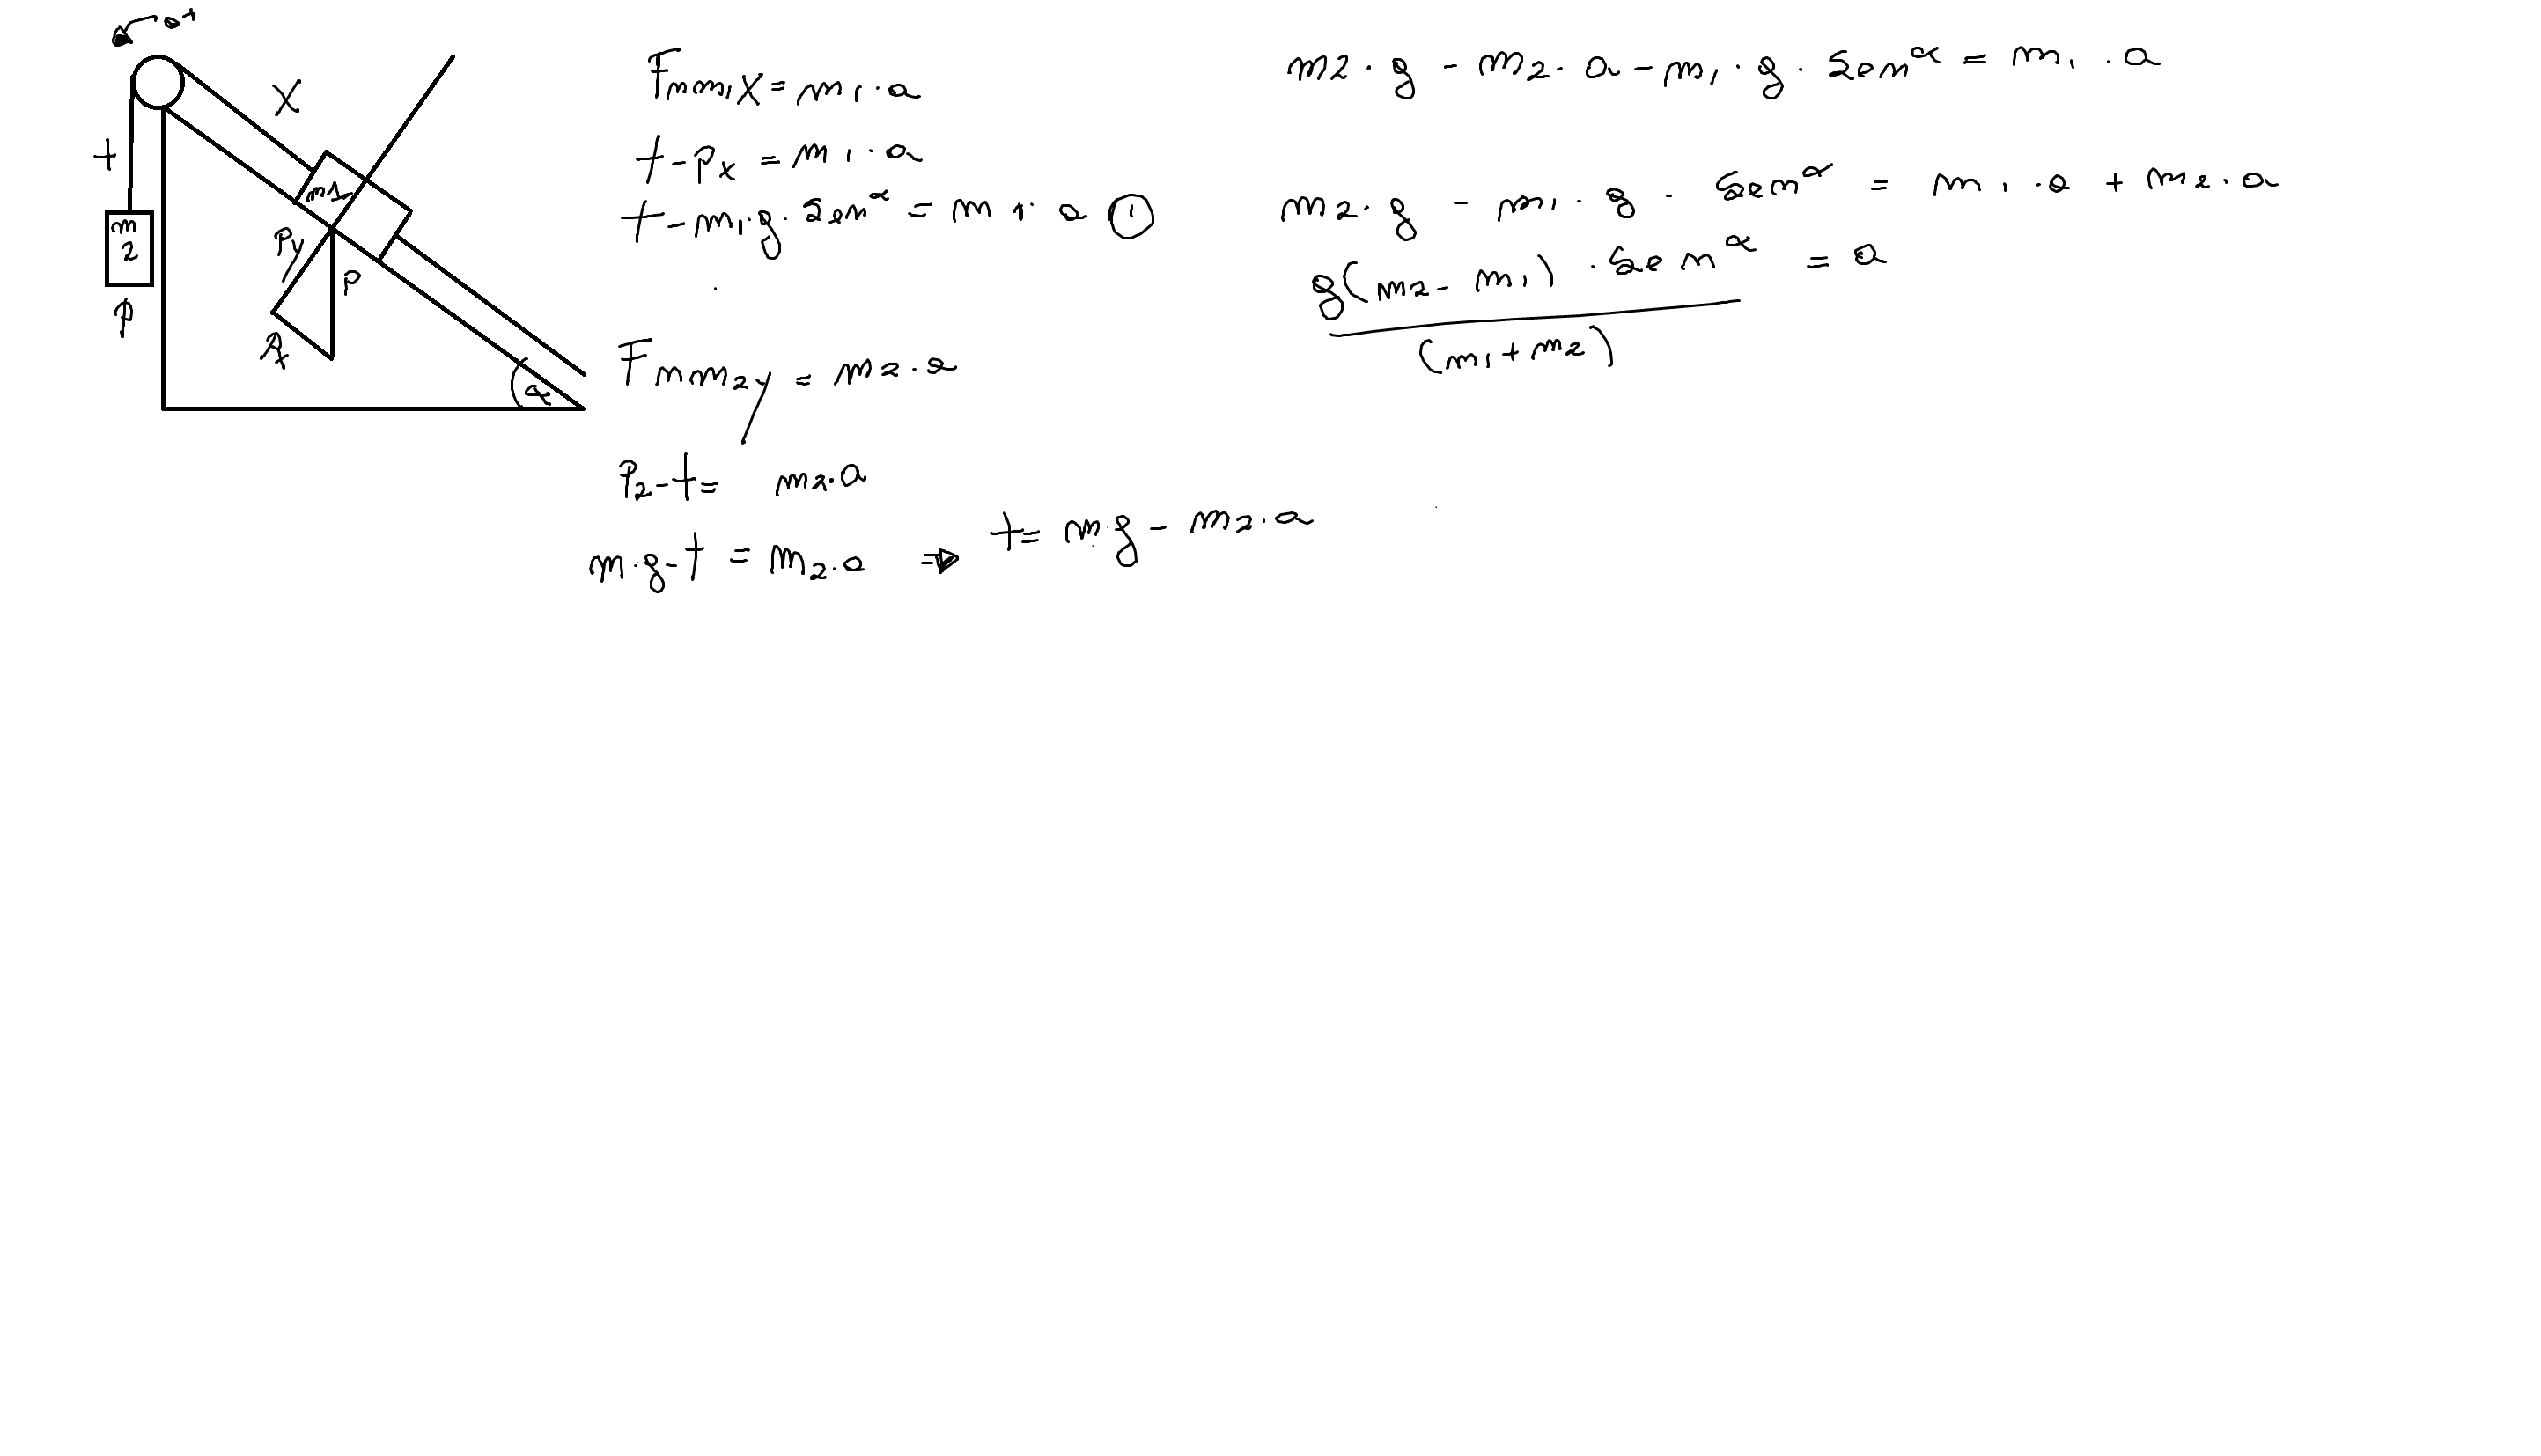 a+
X
t
m1
m
2
Py
P
p
Px
α
Fnm₁x = m₁·a
t - Px = m₁·a
t - m₁·g·sen^α = m1·a ①
Fnm₂y = m₂·a
P₂ - t = m₂·a
m·g - t = m₂·a ⇒ t = m·g - m₂·a
m2·g - m₂·a - m₁·g·sen^α = m₁·a
m₂·g - m₁·g·sen^α = m₁·a + m₂·a
g(m₂ - m₁)·sen^α = a
(m₁ + m₂)